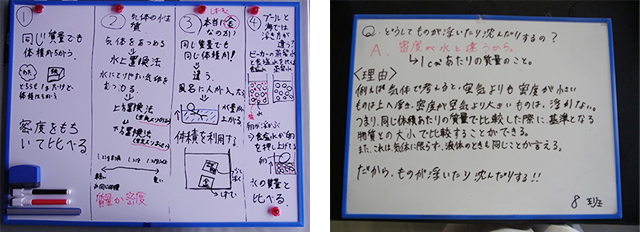 ①
同じ質量でも
体積がちがう。
わた
どちらも1gだけど、
体積はちがう
密度をもち
いて比べる
②
気体の性質
気体をあつめる
水上置換法
水にとけやすい気体を
あつめる。
上方置換法
下方置換法
質量か密度
③
本当になるのか?
同じ質量でも
同じ体積か!
違う。
風呂に人が入ったら
水が量が
上がる
体積を利用する
金
④
プールと
海では
浮き方が
違う?
ビーカーの蒸留水
と食塩水を比
食塩水が卵
を押し上げて
水の質量と
比べる。
Q. どうしてものが浮いたり沈んだりするの?
A. 密度が水と違うから。
1cm³あたりの質量のこと。
<理由>
例えば気体で考えると、空気よりも密度が小さい
ものは上へ浮き、密度が空気より大きいものは、浮かない。
つまり、同じ体積あたりの質量で比較した際に基準となる
物質との大小で比較することができる。
また、これは気体に限らず、液体のときも同じことが言える。
だから、ものが浮いたり沈んだりする!!
8班